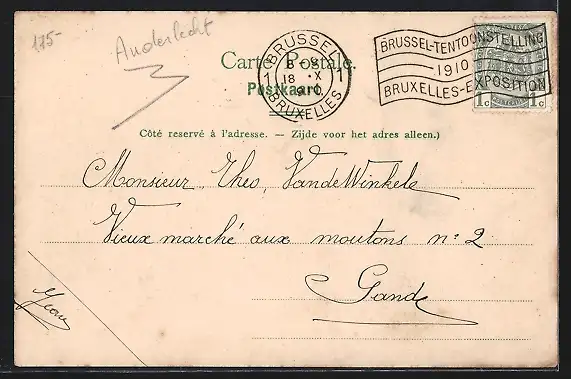 175-
Anderlecht
Carte Postale.
Postkaart.
BRUSSEL
1 8-9 1
18 X
1910
BRUXELLES
BRUSSEL-TENTOONSTELLING
1910
BRUXELLES-EXPOSITION
1c 1c
Côté reservé à l'adresse. — Zijde voor het adres alleen.)
Monsieur Theo. VandeWinkele
Vieux marché aux moutons n° 2
Gand
Jean